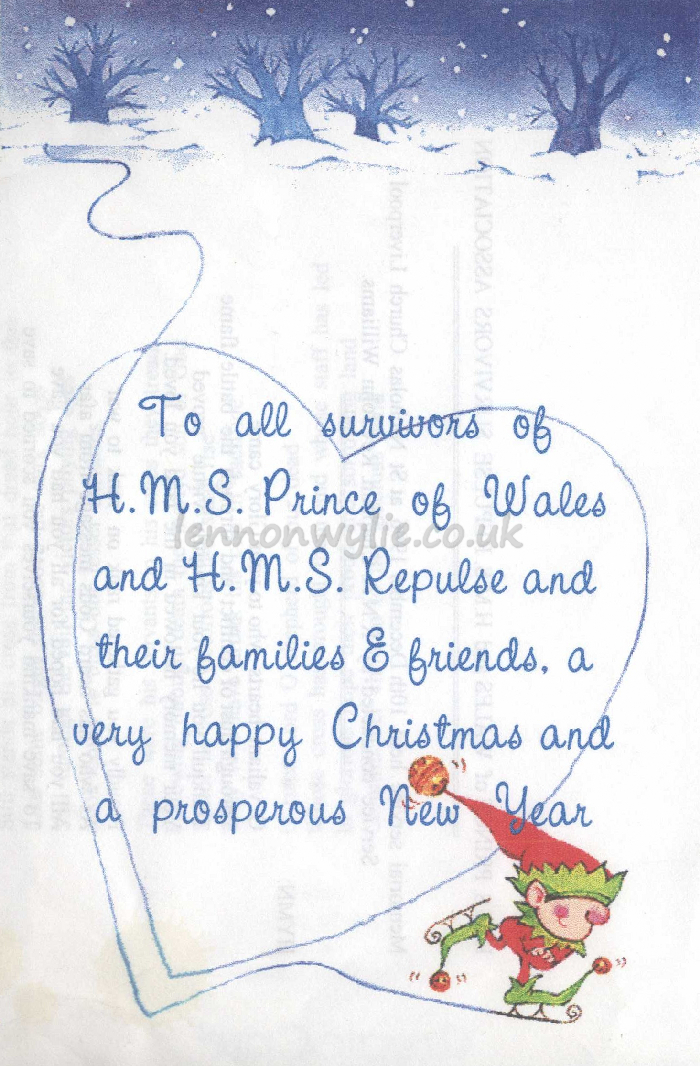 To all survivors of
H.M.S. Prince of Wales
lennonwylie.co.uk
and H.M.S. Repulse and
their families & friends, a
very happy Christmas and
a prosperous New Year